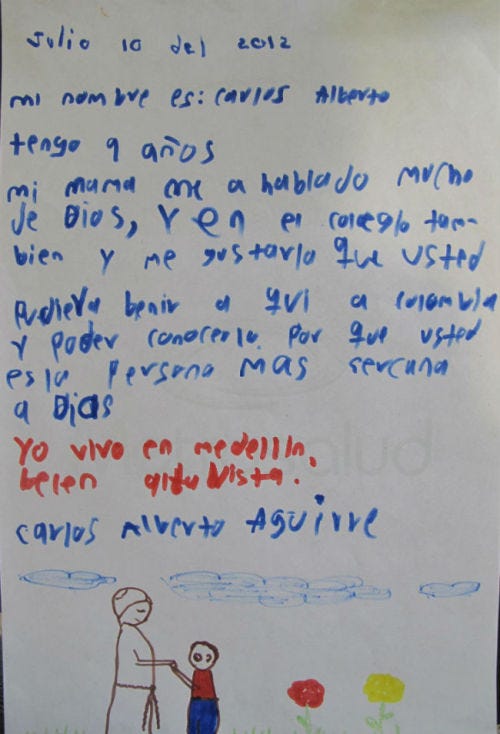 Julio 10 del 2012
mi nombre es: carlos Alberto
tengo 9 años
mi mama me a hablado mucho
de Dios, y en el colegio tam-
bien y me gustaria que usted
pudiera benir a qui a colombia
y poder conocerlo. por que usted
es la Persona mas sercana
a Dios
Yo vivo en medellin.
belen altavista.
carlos Alberto Aguirre
salud